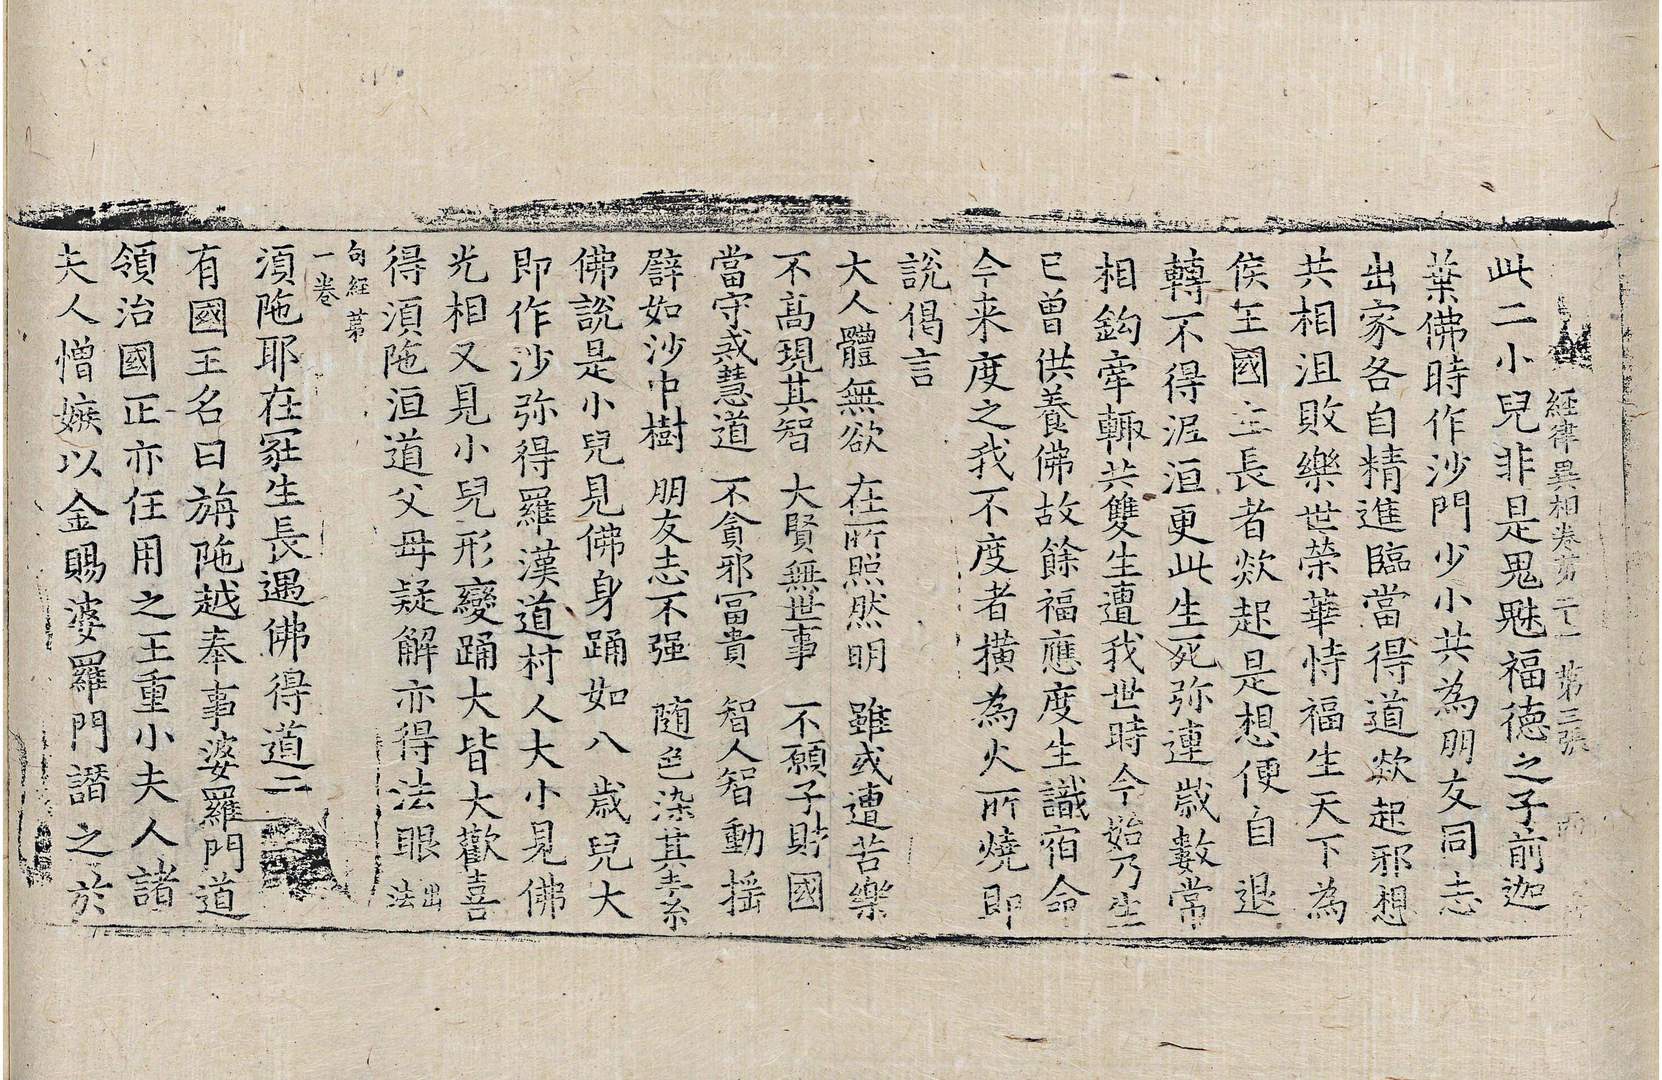 経律異相卷第二十一 第三張 西
此二小兒非是鬼魅福德之子前迦
葉佛時作沙門少小共為朋友同志
出家各自精進臨當得道欻起邪想
共相沮敗樂世榮華恃福生天下為
侯王國主長者欻起是想便自退
轉不得泥洹更此生死弥連歲數常
相鈎牽輙共雙生遭我世時今始乃生
已曾供養佛故餘福應度生識宿命
今来度之我不度者橫為火所燒即
說偈言
大人體無欲 在所照然明 雖或遭苦樂
不高現其智 大賢無世事 不願子財國
當守戒慧道 不貪邪冨貴 智人智動揺
譬如沙中樹 朋友志不强 随色染其素
佛說是小兒見佛身踊如八歲兒大
即作沙弥得羅漢道村人大小見佛
光相又見小兒形變踊大皆大歡喜
得湏陁洹道父母疑解亦得法眼 出法
句經第
一卷
湏陁耶在冢生長遇佛得道二
有國王名曰旃陁越奉事婆羅門道
領治國正亦任用之王重小夫人諸
夫人憎嫉以金賜婆羅門譖之於